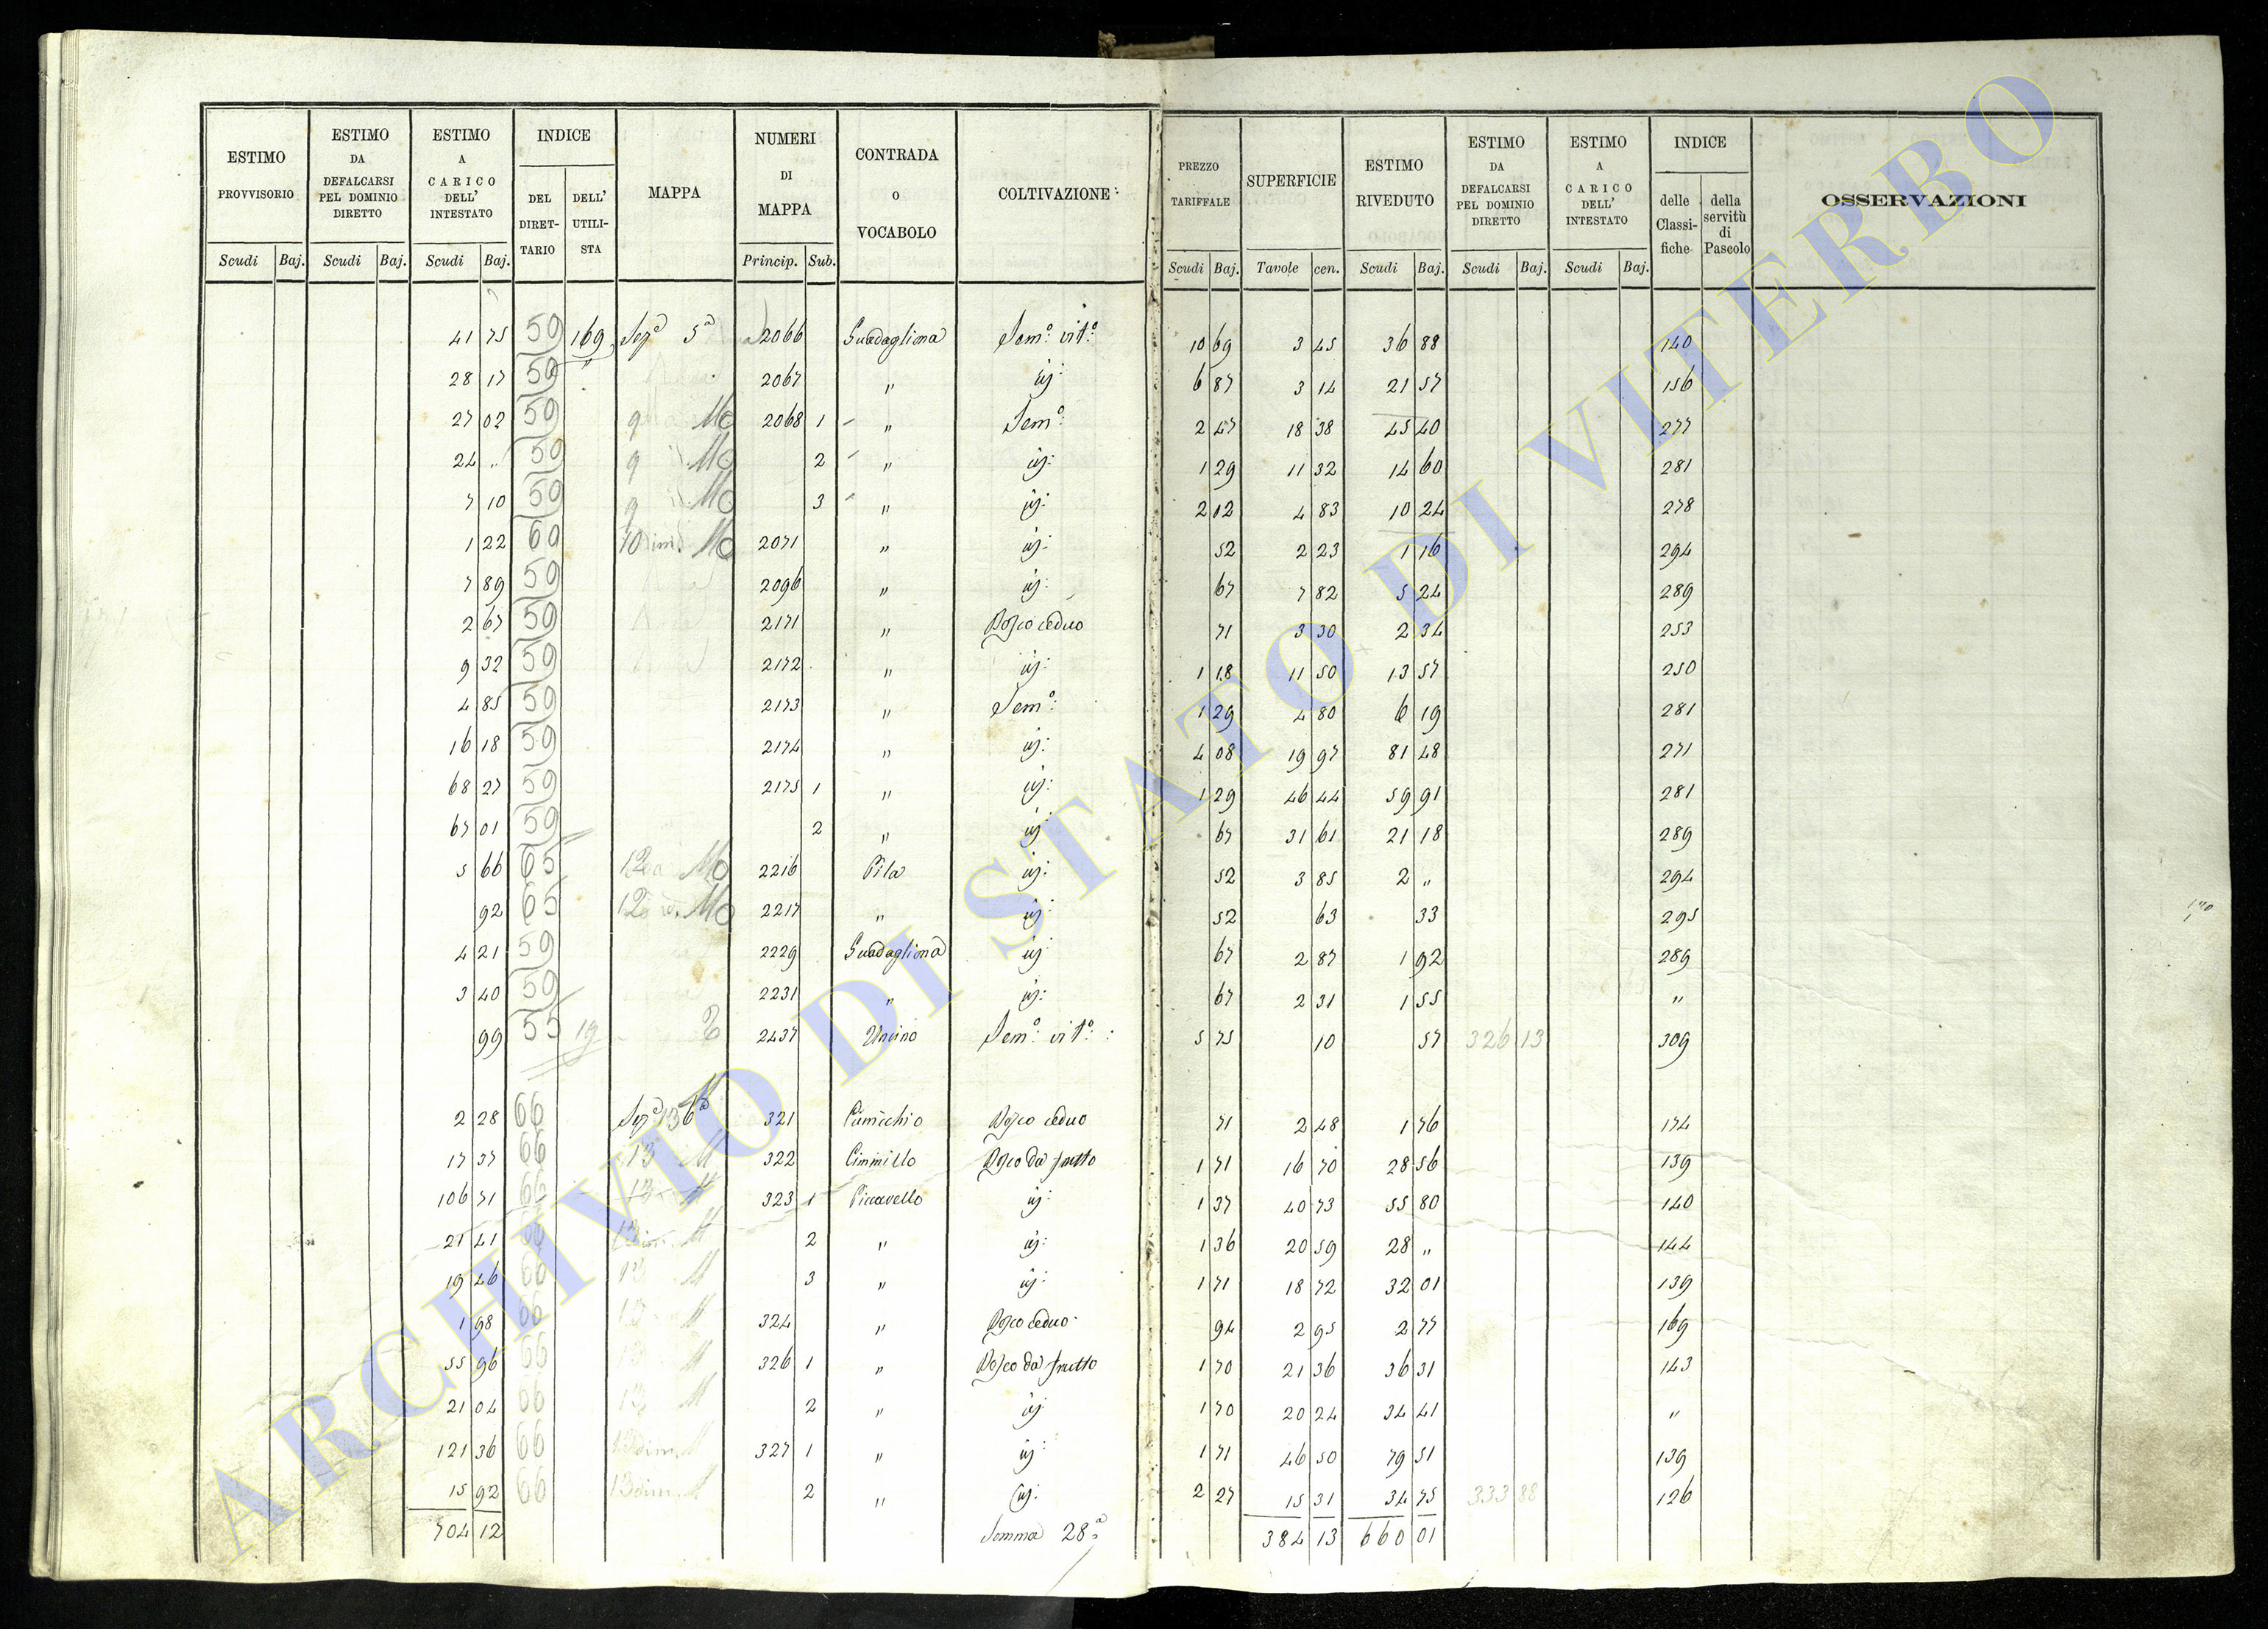 ESTIMO PROVVISORIO | ESTIMO DA DEFALCARSI PEL DOMINIO DIRETTO | ESTIMO A CARICO DELL' INTESTATO | INDICE DEL DIRETTARIO | DELL' UTILISTA | MAPPA | NUMERI DI MAPPA | CONTRADA O VOCABOLO | COLTIVAZIONE | PREZZO TARIFFALE | SUPERFICIE | ESTIMO RIVEDUTO | ESTIMO DA DEFALCARSI PEL DOMINIO DIRETTO | ESTIMO A CARICO DELL' INTESTATO | INDICE delle Classifiche | della servitù di Pascolo | OSSERVAZIONI
Scudi Baj. Scudi Baj. Scudi Baj. Princip. Sub. Scudi Baj. Tavole cen. Scudi Baj. Scudi Baj. Scudi Baj.
41 75 59 169 Sez.e 5a 2066 Guadagliona Sem.o vit.o 10 69 3 45 36 88 140
28 17 59 " 2067 " id: 6 87 3 14 21 57 156
27 02 59 9 Mo 2068 1 " Sem.o 2 47 18 38 45 40 277
24 " 59 9 Mo 2 " id: 1 29 11 32 14 60 281
7 10 59 9 Mo 3 " id: 2 12 4 83 10 24 278
1 22 60 10 Mo 2071 " id: 52 2 23 1 16 294
7 89 59 2096 " id: 67 7 82 5 24 289
2 67 59 2171 " Bosco ceduo 71 3 30 2 34 253
9 32 59 2172 " id: 1 18 11 50 13 57 250
4 85 59 2173 " Sem.o 1 29 4 80 6 19 281
16 18 59 2174 " id: 4 08 19 97 81 48 271
68 27 59 2175 1 " id: 1 29 46 44 59 91 281
67 01 59 2 " id: 67 31 61 21 18 289
5 66 65 12 Mo 2216 Pila id: 52 3 85 2 " 294
92 65 12 Mo 2217 " id: 52 63 33 295
4 21 59 2229 Guadagliona id: 67 2 87 1 92 289
3 40 59 2231 " id: 67 2 31 1 55 "
99 55 19 2437 Uncino Sem.o vit.o 5 75 10 57 326 13 309
2 28 66 Sez.e 6a 13 M 321 Cumichio Bosco ceduo 71 2 48 1 76 174
17 37 66 13 M 322 Cimmillo Bosco da frutto 1 71 16 70 28 56 139
106 71 66 13 M 323 1 Piccavello id: 1 37 40 73 55 80 140
21 41 66 13 M 2 " id: 1 36 20 59 28 " 144
19 46 66 13 M 3 " id: 1 71 18 72 32 01 139
1 98 66 13 M 324 " Bosco ceduo 94 2 95 2 77 169
55 96 66 13 M 326 1 " Bosco da frutto 1 70 21 36 36 31 143
21 04 66 13 M 2 " id: 1 70 20 24 34 41 "
121 36 66 13 M 327 1 " id: 1 71 46 50 79 51 139
15 92 66 13 M 2 " id: 2 27 15 31 34 75 333 88 126
704 12 Somma 28a 384 13 660 01
ARCHIVIO DI STATO DI VITERBO